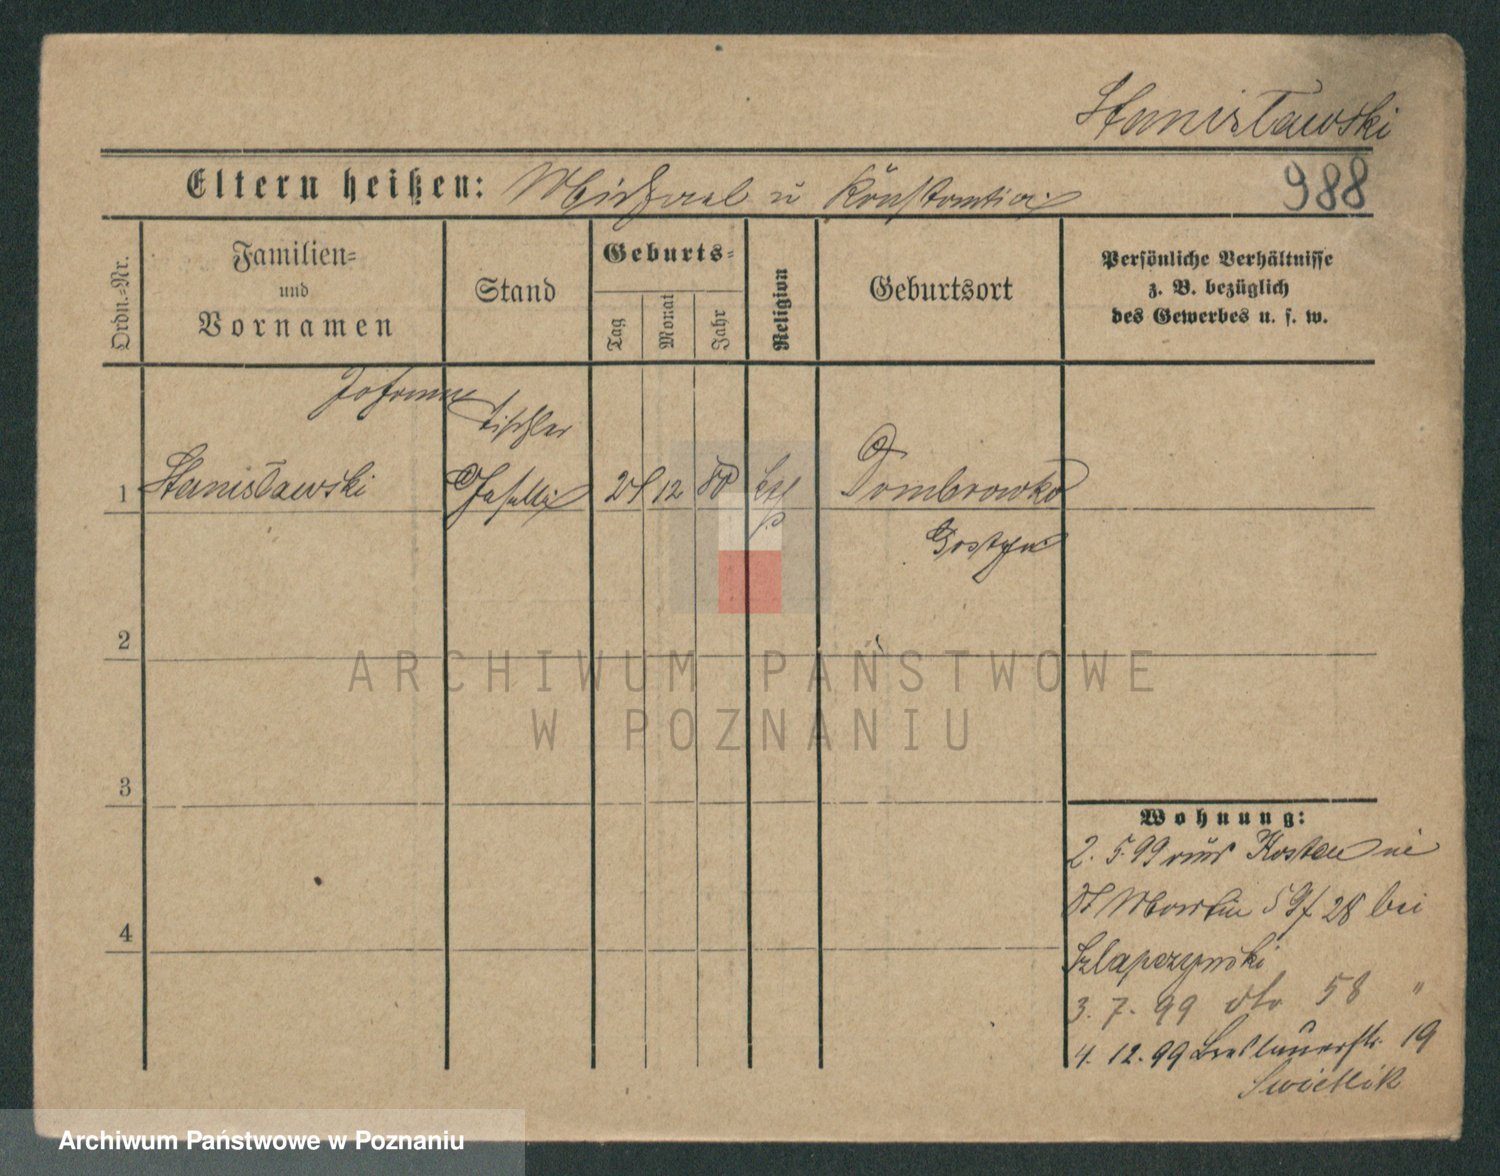 Stanisławski
Eltern heißen: Michael u Konstantia
988
Ordn.-Nr.
Familien-
und
Vornamen
Stand
Geburts-
Tag
Monat
Jahr
Religion
Geburtsort
Persönliche Verhältnisse
z. B. bezüglich
des Gewerbes u. s. w.
Johann
Tischler
1 Stanisławski 12 80 Dombrowka
Gostyn
2
3
4
Wohnung:
2. 5. 99 aus Kosten
St Martin 28 bei
Szlapczynski
3. 7. 99 dto 58 "
4. 12. 99 Breslauerstr. 19
Swietlik
ARCHIWUM PAŃSTWOWE
W POZNANIU
Archiwum Państwowe w Poznaniu